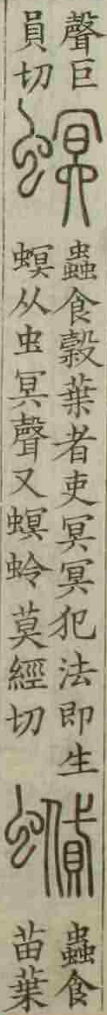 聲巨
員切
螟
蟲食穀葉者吏冥冥犯法即生
螟从虫冥聲又螟蛉莫經切
蟘
蟲食
苗葉